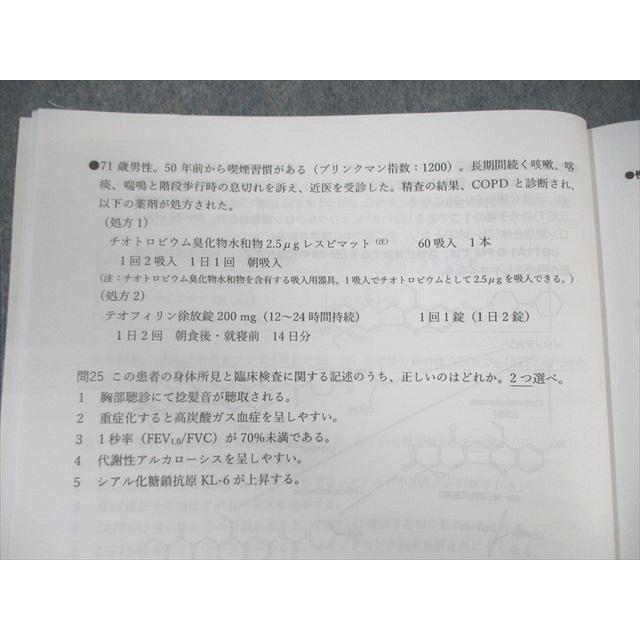 ●71歳男性。50年前から喫煙習慣がある（ブリンクマン指数：1200）。長期間続く咳嗽、喀
痰、喘鳴と階段歩行時の息切れを訴え、近医を受診した。精査の結果、COPDと診断され、
以下の薬剤が処方された。
（処方1）
チオトロピウム臭化物水和物2.5μgレスピマット（注） 60吸入 1本
1回2吸入 1日1回 朝吸入
（注：チオトロピウム臭化物水和物を含有する吸入用器具。1吸入でチオトロピウムとして2.5μgを吸入できる。）
（処方2）
テオフィリン徐放錠200mg（12～24時間持続） 1回1錠（1日2錠）
1日2回 朝食後・就寝前 14日分
問25 この患者の身体所見と臨床検査に関する記述のうち、正しいのはどれか。2つ選べ。
1 胸部聴診にて捻髪音が聴取される。
2 重症化すると高炭酸ガス血症を呈しやすい。
3 1秒率（FEV1.0/FVC）が70%未満である。
4 代謝性アルカローシスを呈しやすい。
5 シアル化糖鎖抗原KL-6が上昇する。